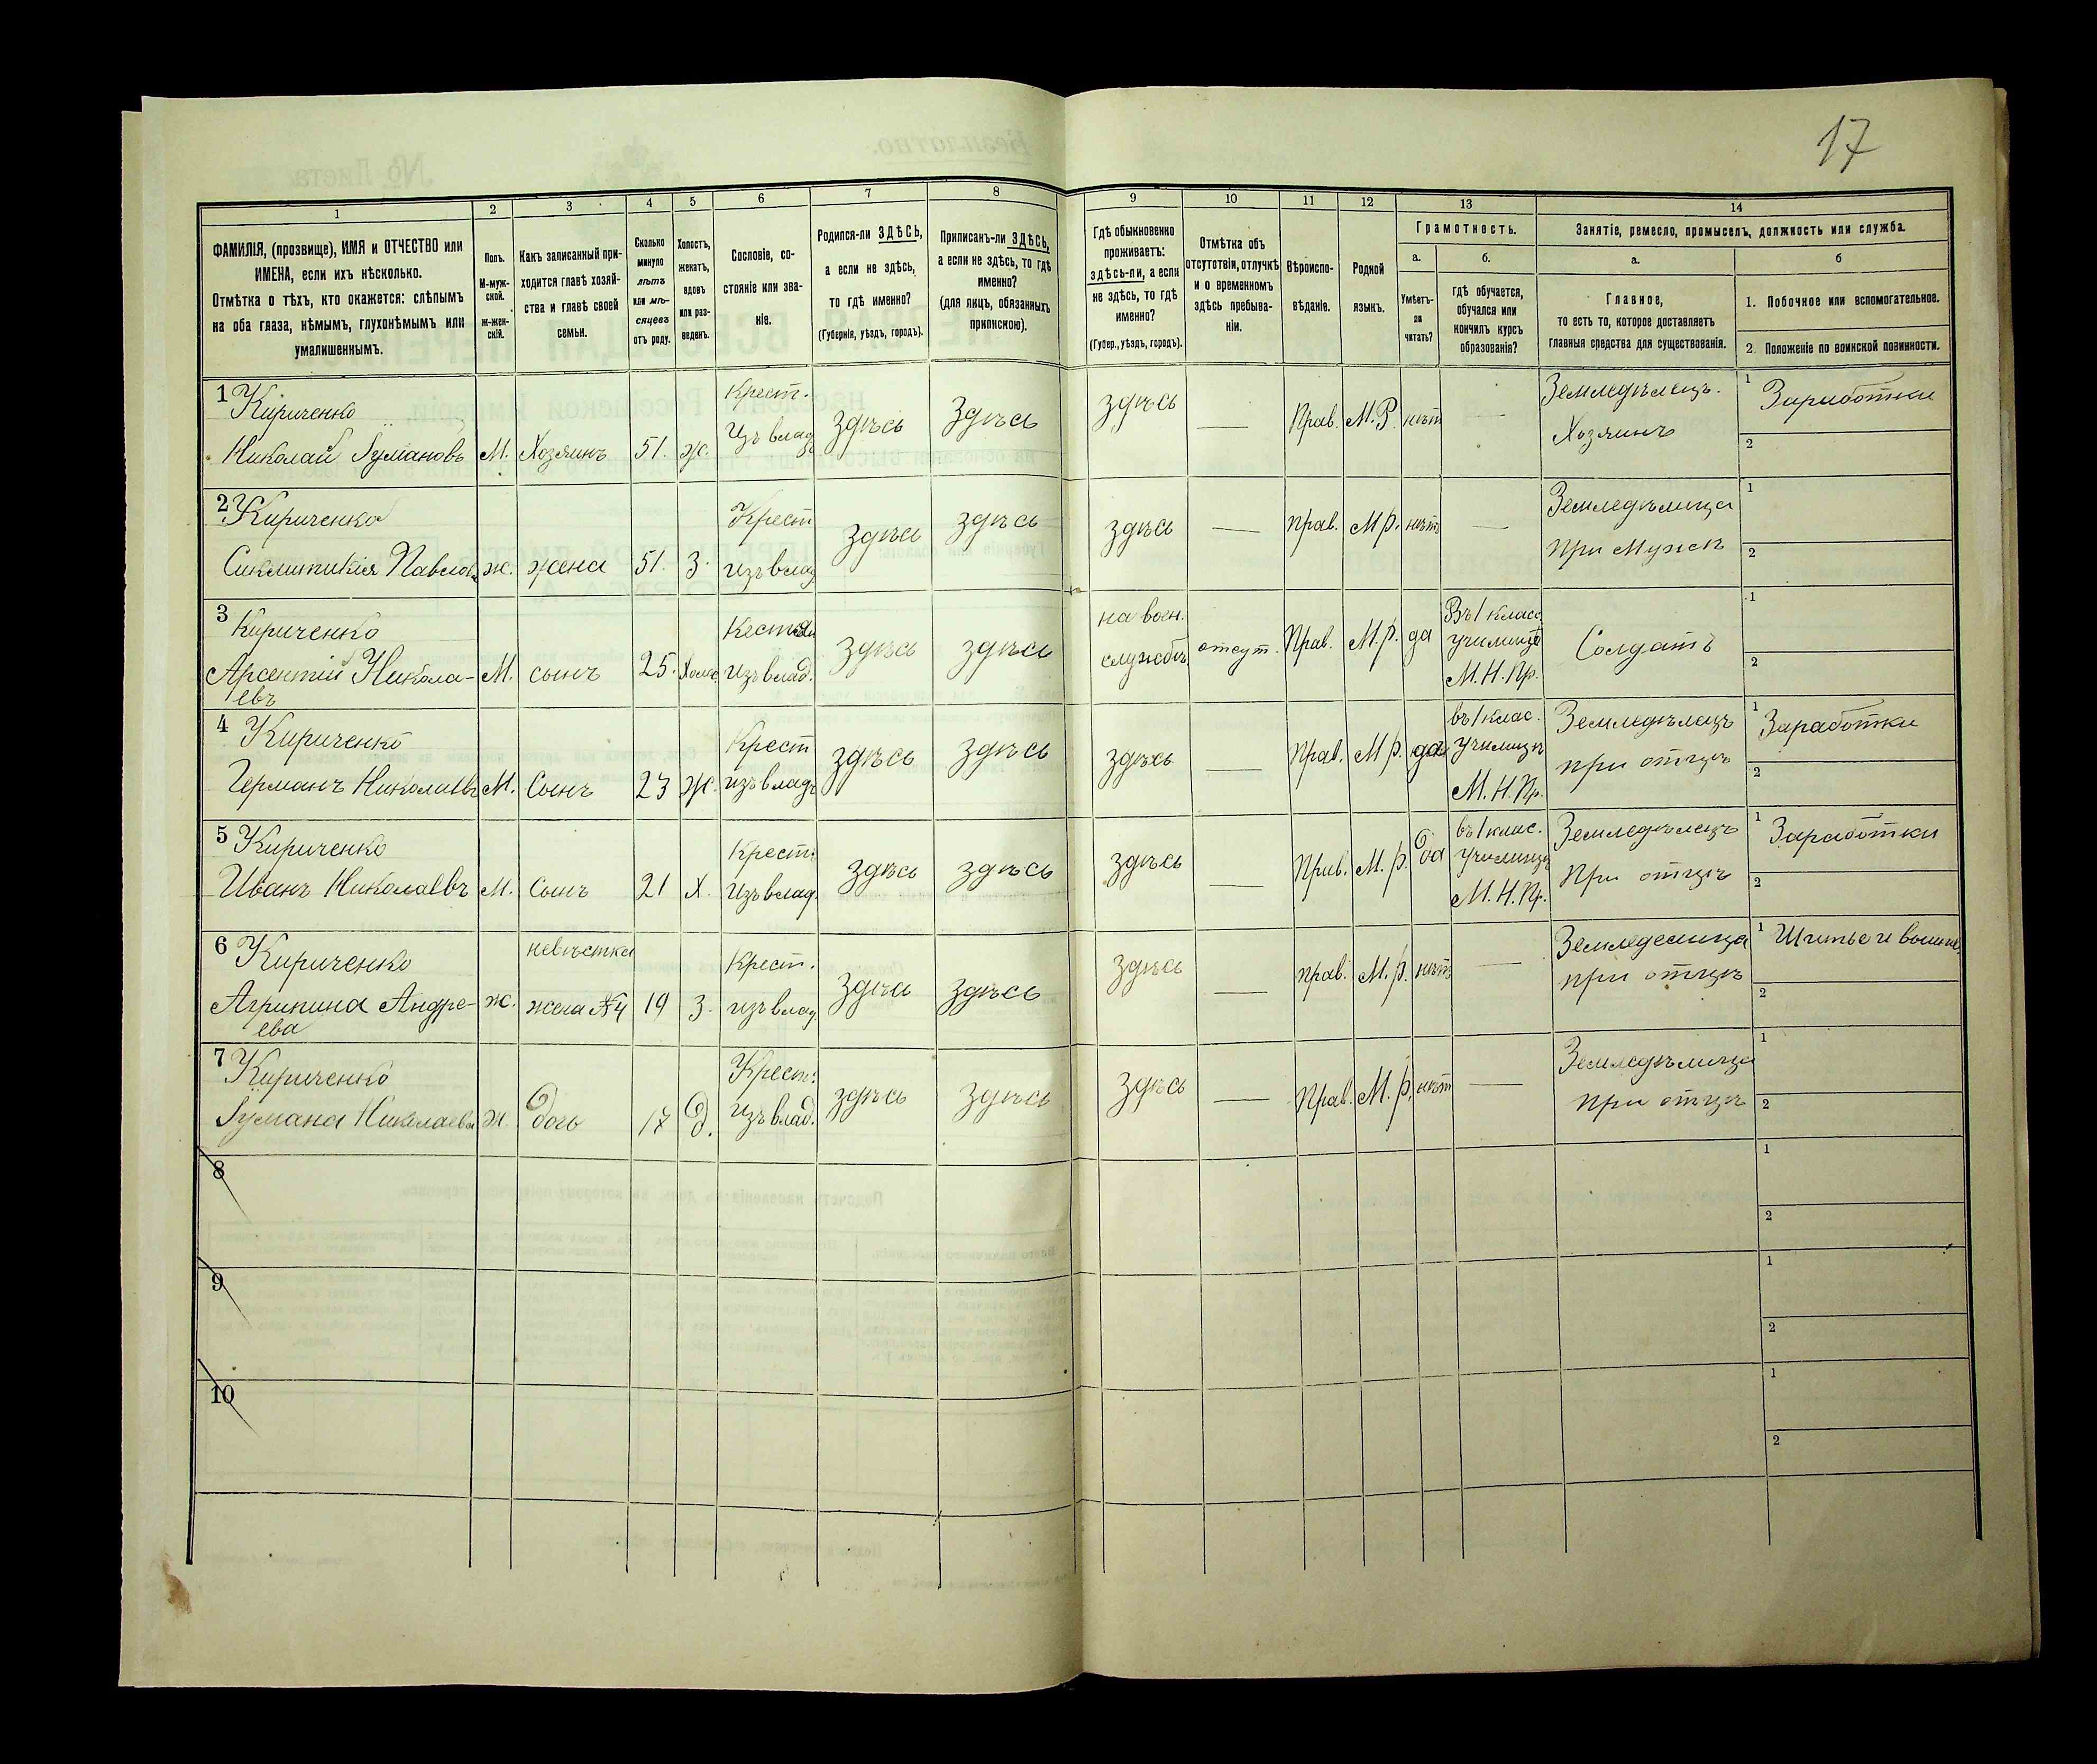 17
1
2
3
4
5
6
7
8
9
10
11
12
13
14
ФАМИЛІЯ, (прозвище), ИМЯ и ОТЧЕСТВО или
ИМЕНА, если ихъ нѣсколько.
Отмѣтка о тѣхъ, кто окажется: слѣпымъ
на оба глаза, нѣмымъ, глухонѣмымъ или
умалишеннымъ.
Полъ.
М-муж-
ской.
ж-жен-
скій.
Какъ записанный при-
ходится главѣ хозяй-
ства и главѣ своей
семьи.
Сколько
минуло
лѣтъ
или мѣ-
сяцевъ
отъ роду.
Холостъ,
женатъ,
вдовъ
или раз-
веденъ.
Сословіе, со-
стояніе или зва-
ніе.
Родился-ли ЗДѢСЬ,
а если не здѣсь,
то гдѣ именно?
(Губернія, уѣздъ, городъ).
Приписанъ-ли ЗДѢСЬ,
а если не здѣсь, то гдѣ
именно?
(для лицъ, обязанныхъ
припискою).
Гдѣ обыкновенно
проживаетъ:
здѣсь-ли, а если
не здѣсь, то гдѣ
именно?
(Губер., уѣздъ, городъ).
Отмѣтка объ
отсутствіи, отлучкѣ
и о временномъ
здѣсь пребыва-
ніи.
Вѣроиспо-
вѣданіе.
Родной
языкъ.
Грамотность.
а.
Умѣетъ-
ли
читать?
б.
гдѣ обучается,
обучался или
кончилъ курсъ
образованія?
Занятіе, ремесло, промыселъ, должность или служба.
а.
Главное,
то есть то, которое доставляетъ
главныя средства для существованія.
б
1. Побочное или вспомогательное.
2. Положеніе по воинской повинности.
1 Кириченко
Николай Гумановъ М. Хозяинъ 51. ж. Крест. Изъ влад здѣсь Здѣсь здѣсь — Прав. М.Р. нѣтъ — Земледѣлецъ. Хозяинъ 1 Заработки
2
2 Кириченко
Павлова ж. жена 51. З. Крест изъ влад здѣсь здѣсь здѣсь — прав. М.р. нѣтъ — Земледѣлица при Мужѣ 1
2
3 Кириченко
Арсентій Никола-
евъ М. сынъ 25. Холос. изъ влад. здѣсь здѣсь на воен. службѣ отсут. Прав. М.р. да Въ 1 класс училищѣ М.Н.Пр. Солдатъ 1
2
4 Кириченко
Германъ Николаевъ М. Сынъ 23 Ж. Крест изъ владъ здѣсь здѣсь здѣсь — Прав. М.р. да въ 1 клас. училищѣ М.Н.Пр. Земледѣлецъ при отцѣ 1 Заработки
2
5 Кириченко
Иванъ Николаевъ М. Сынъ 21 Х. Крест. Изъ влад. здѣсь здѣсь здѣсь — Прав. М.р. да въ 1 клас. Училищѣ М.Н.Пр. Земледѣлецъ При отцѣ 1 Заработки
2
6 Кириченко
Агрипина Андре-
ева ж. невѣстка жена №4 19 З. Крест. изъ влад. здѣсь здѣсь здѣсь — прав. М.р. нѣтъ — Земледелица при отцѣ 1 Шитье и
2
7 Кириченко
Гумана Николаева ж. дочь 17 д. Крест. Изъ влад. здѣсь здѣсь здѣсь — Прав. М.р. нѣтъ — Земледѣлица при отцѣ 1
2
8
1
2
9
1
2
10
1
2